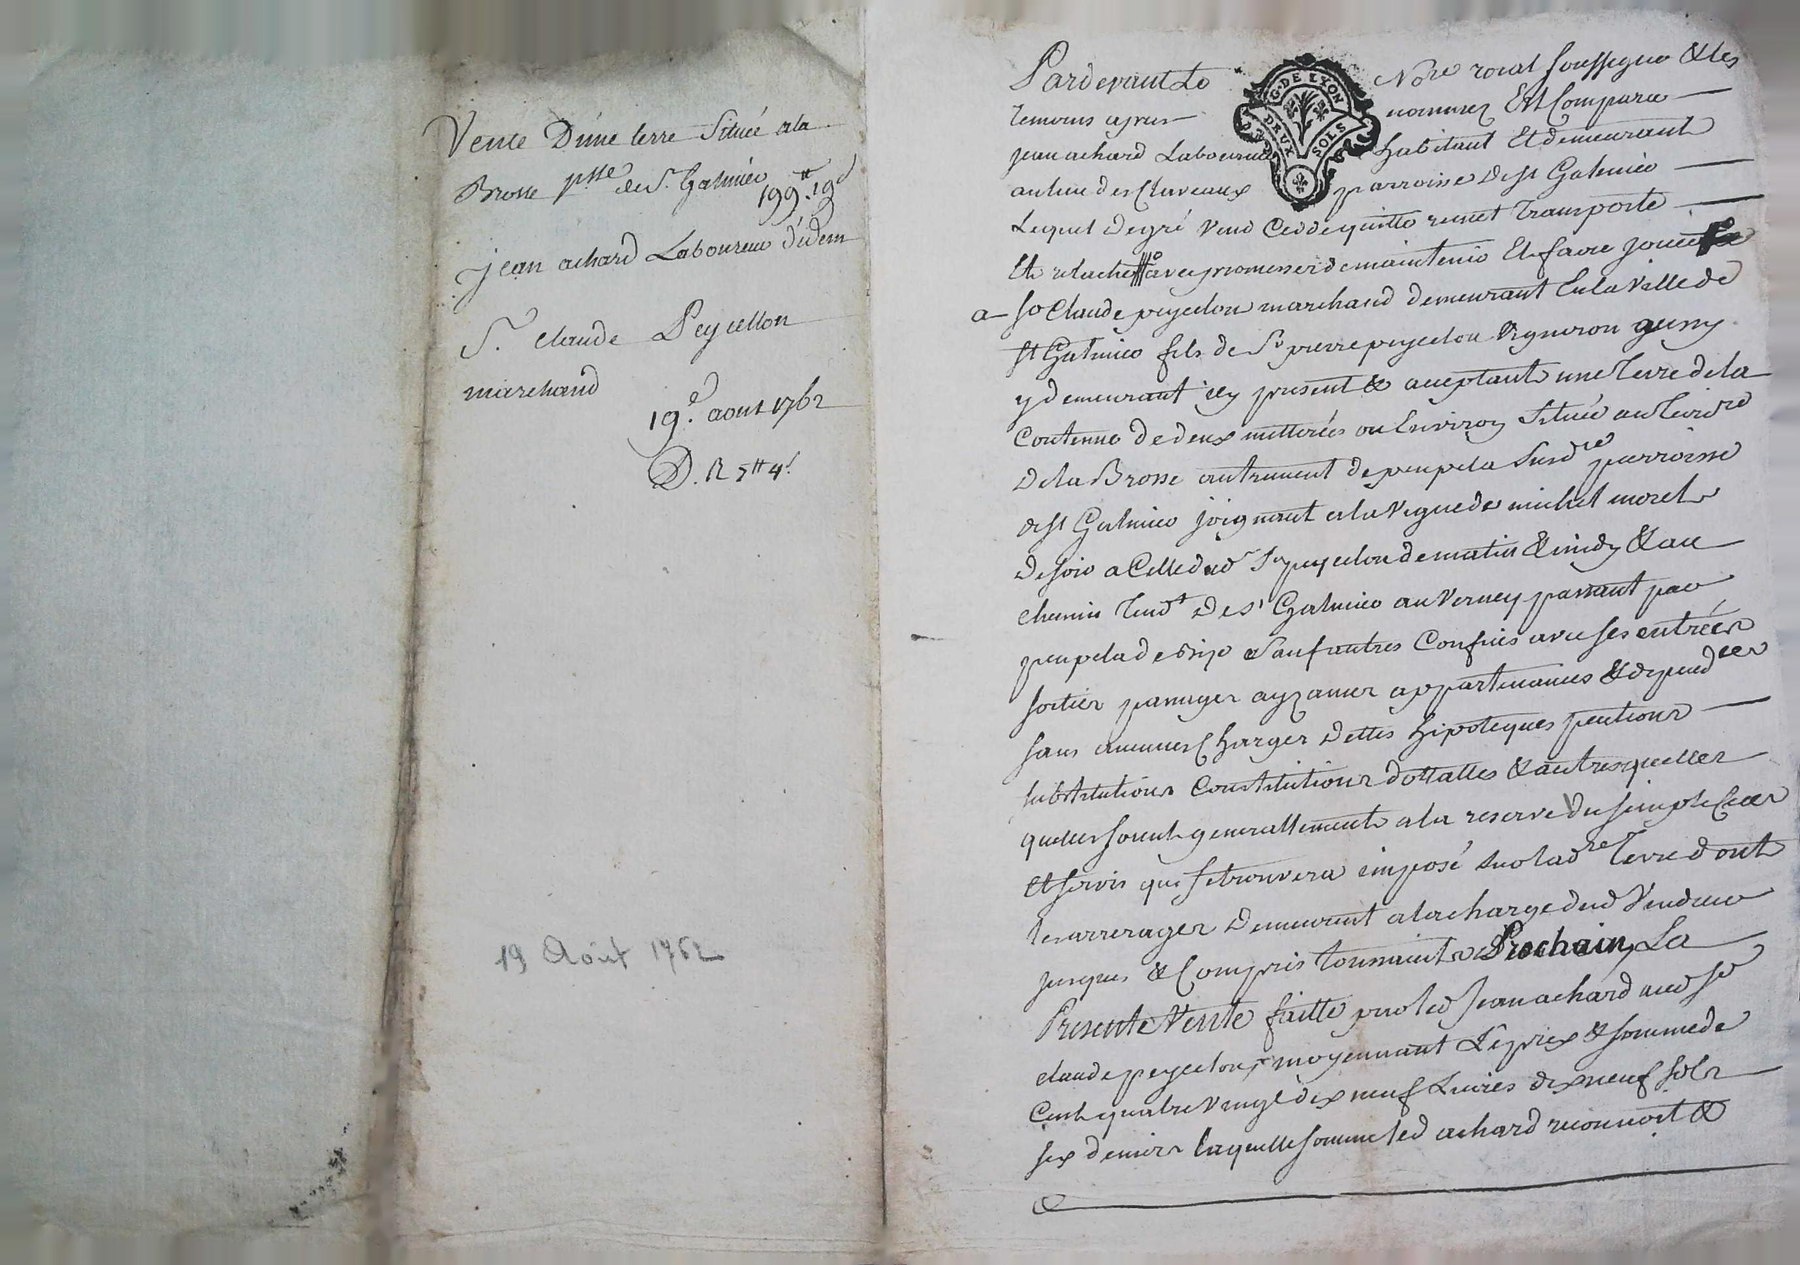 Vente D'une terre Située a la
Brosse psse de St Galmier
199tt 19d
jean achard Laboureur d'idem
Sr claude Peycellon
marchand
19e aout 1762
D. R 5tt 4s
19 Août 1762
G. DE LYON
DEUX SOLS
Pardevant Le Nore roial soussigné & les
temoins apres nommez Est Comparu
jean achard Laboureur habitant Et demeurant
au lieu des Claveaux parroisse de st Galmier
Lequel de gré vend Cedde quitte remet Transporte
Et relache avec promesses de maintenir Et faire jouir
a sr Claude peycelon marchand demeurant En la Ville de
st Galmier fils de Sr pierre peycelon Vigneron
y demeurant icy present & acceptant une Terre de la
Contenue de deux metterées ou Environ Située au Terroire
De la Brosse autrement de poupela Susdte parroisse
de st Galmier joignant a la Vigne de michel morel
de soir a Celle dud Sr peycelon de matin & midy & au
chemin Tendt de St Galmier au Verney passant par
poupela de bize Sauf autres Confins avec ses entrées
sorties passages ayzances appartenances & dependces
sans aucunes Charges dettes hipoteques pentions
substitutions Constitutions dottalles & autres quelles
quelles soient generallement a la reserve du simple Cens
Et servis qui se trouvera imposé sur lade Terre dont
les arrerages Demeurent a la charge dud Vendeur
jusques & Compris toussaints Prochain La
Presente Vente faitte par led Jean achard aud sr
claude peycelon moyennant Le prix & somme de
Cent quatre vingt dix neuf Livres dix neuf sols
six deniers laquelle somme led achard reconnoit &